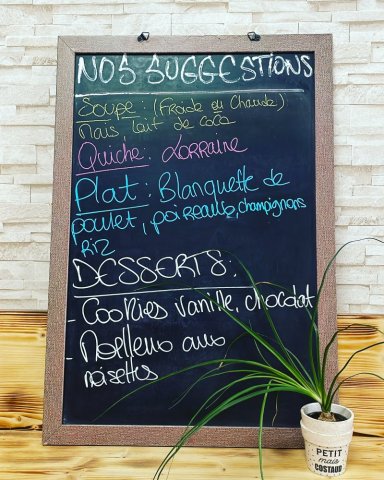 NOS SUGGESTIONS
Soupe : (Froide ou Chaude)
Maïs, lait de coco
Quiche : Lorraine
Plat : Blanquette de
poulet, poireaux, champignons
Riz
DESSERTS :
- Cookies vanille, chocolat
- Moelleux aux
noisettes
PETIT
mais
COSTAUD